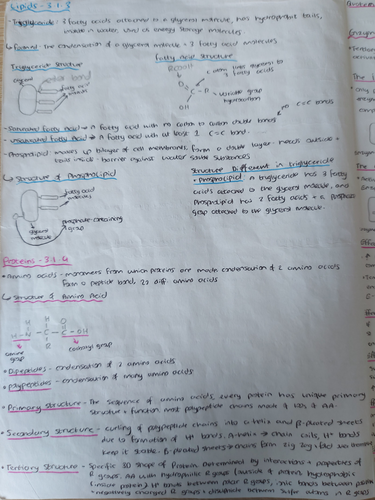 Lipids - 3.1.3
• Triglyceride: 3 fatty acids attached to a glycerol molecule, has hydrophobic tails,
insoluble in water, used as energy storage molecules
↳ Formed: The condensation of a glycerol molecule + 3 fatty acid molecules.
Triglyceride Structure
Fatty acid Structure
glycerol
ester bond
fatty acid
molecule
OH
variable group
hydrocarbon
no C=C bonds
• Saturated fatty acid → A fatty acid with no carbon to carbon double bonds
• Unsaturated fatty acid → A fatty acid with at least 1 C=C bond.
• Phospholipid: makes up bilayer of cell membranes, form a double layer: heads outside +
tails inside: barrier against water soluble substances
↳ Structure of Phospholipid
Structure Different in triglyceride
+ Phospholipid: A triglyceride has 3 fatty
acids attached to the glycerol molecule, and
Phospholipid has 2 fatty acids + a Phosphate
group attached to the glycerol molecule.
fatty acid
molecule
phosphate-containing
group
glycerol
molecule
Proteins - 3.1.4
• Amino acids - monomers from which proteins are made, condensation of 2 amino acids
form a peptide bond. 20 diff. amino acids
↳ Structure of Amino Acid
H H O
H - N - C - C - OH
R
amine
group
carboxyl group
• Dipeptides - condensation of 2 amino acids
• Polypeptides - condensation of many amino acids
• Primary structure - The sequence of amino acids, every protein has unique primary
structure + function, most polypeptide chains made of 100s of AA.
• Secondary structure - curling of polypeptide chains into α-helix and β-pleated sheets
due to formation of H⁺ bonds, α-helix → chain coils, H⁺ bonds
keep it stable - β-pleated sheets → chains form zig zag + fold over
Tertiary structure - Specific 3D shape of Protein determined by interactions + properties of
R groups, AA with hydrophilic R groups
H⁺ bonds between polar R groups, ionic bonds between positive
+ negatively charged R groups + disulphide between sulfur atoms in R groups